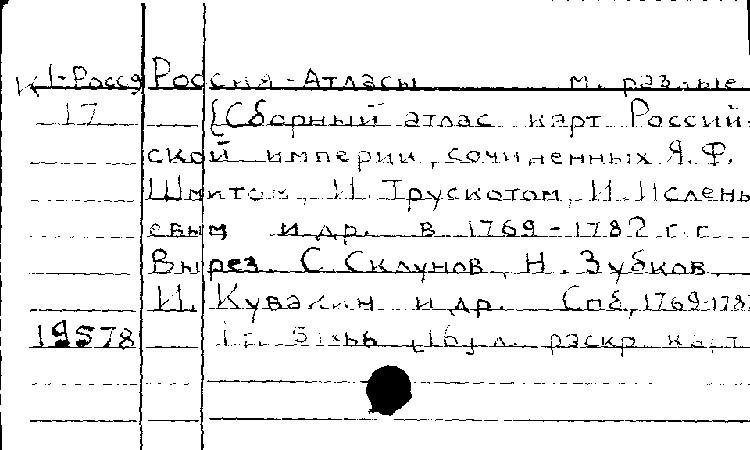 К 1-Росся Россия - Атласы м. разные
17 [Сборный атлас карт Россий-
ской империи, сочиненных Я.Ф.
Шмитом, И. Трускотом, И. Ислень-
евым и др. в 1769-1782 г.г.
Вырез. С. Склунов, Н. Зубков.
И. Кувакин и др. Спб, 1769-1782
19578 1 г. [16] л. раскр. карт